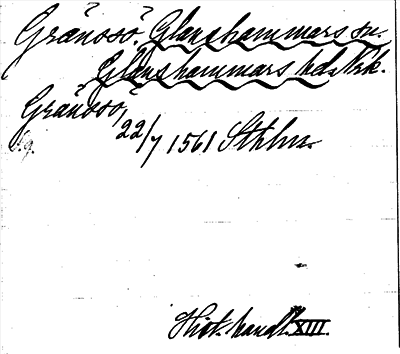 Gränsö. Glanshammars sn.
Glanshammars hd
Gränsö,
22/7 1561 Sthlm
Hist. handl. XIII.